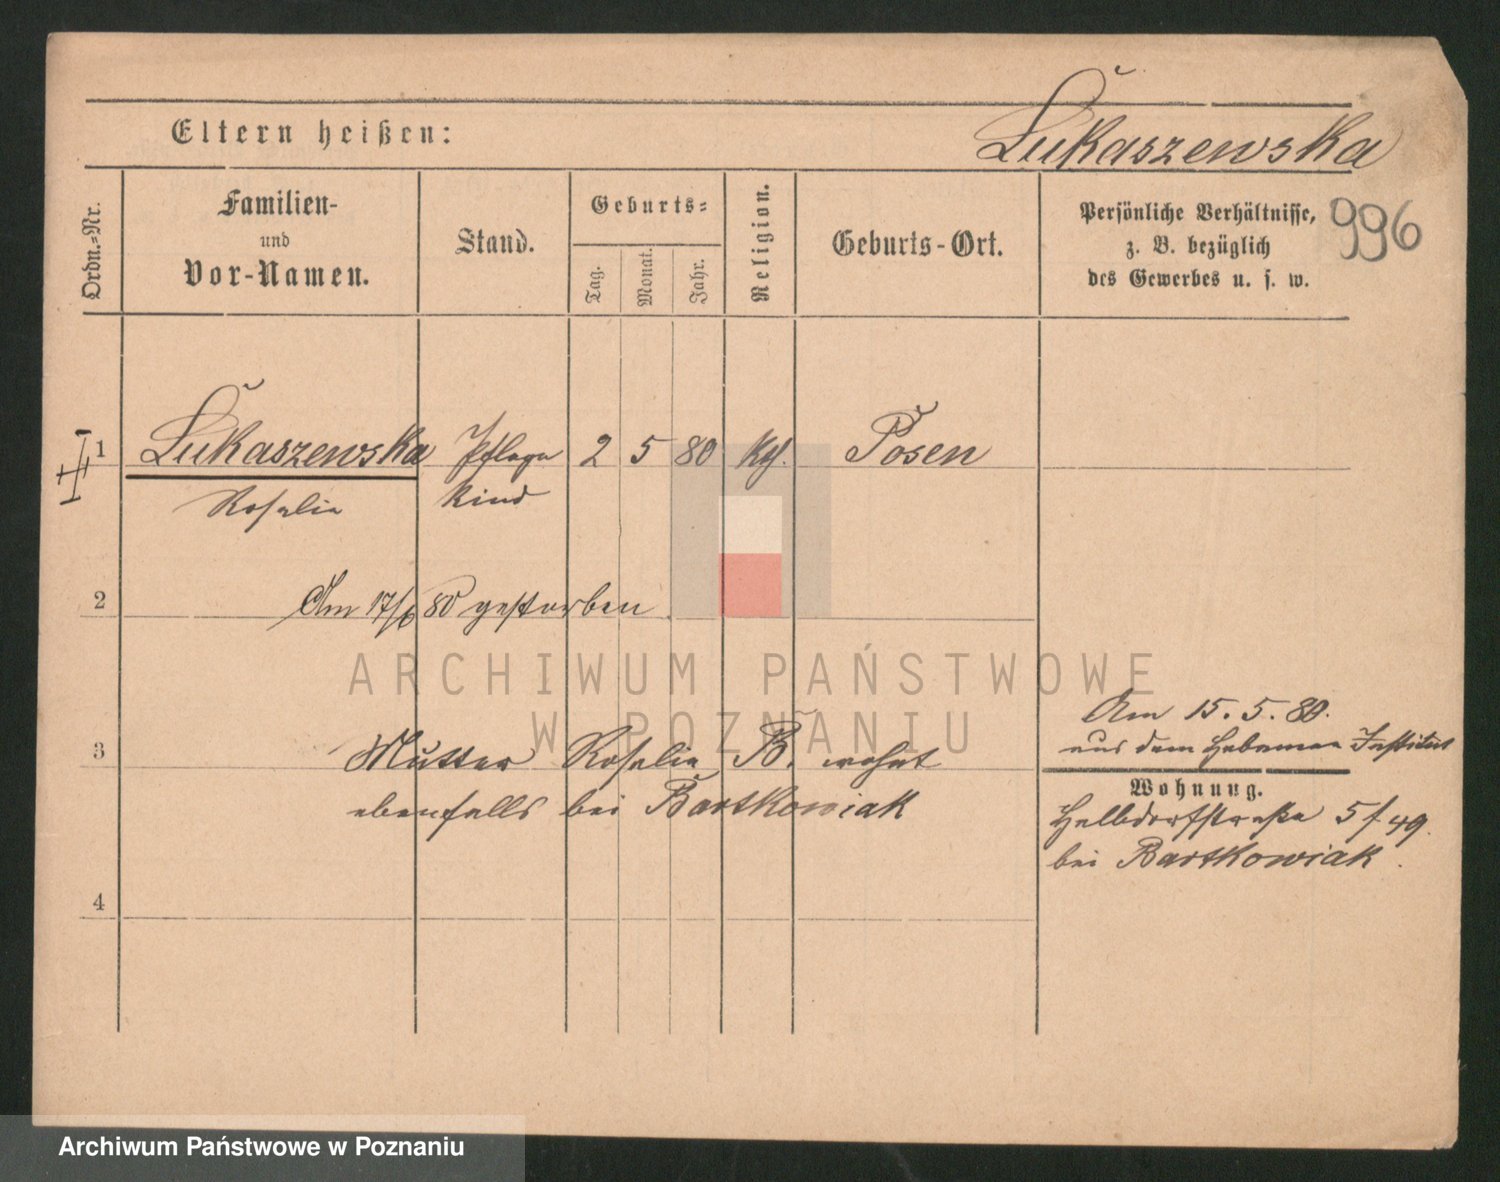 Eltern heißen:
Łukaszewska
Ordn.-Nr.
Familien-
und
Vor-Namen.
Stand.
Geburts-
Tag.
Monat.
Jahr.
Religion.
Geburts-Ort.
Persönliche Verhältnisse,
z. B. bezüglich
des Gewerbes u. s. w.
996
1 Łukaszewska Pflege 2 5 80 Kth. Posen
Rosalie kind
2 Am 17/6 80 gestorben
ARCHIWUM PAŃSTWOWE
W POZNANIU
Am 15. 5. 80.
aus dem Hebammen Institut
3 Mutter Rosalie B. wohnt
ebenfalls bei Bartkowiak
Wohnung.
Halbdorfstraße 5 / 49.
bei Bartkowiak.
4
Archiwum Państwowe w Poznaniu